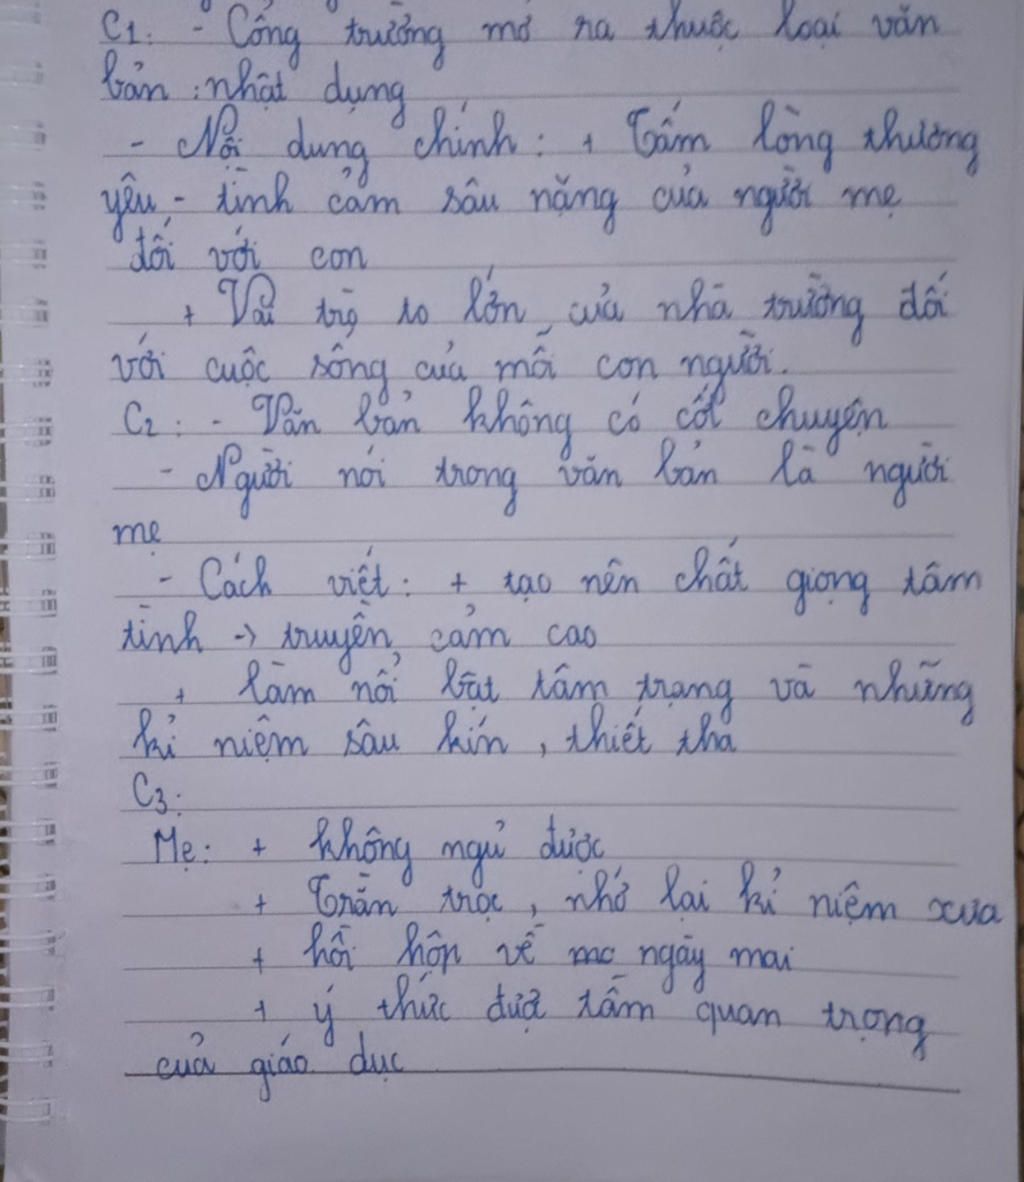 C1: - Cổng trường mở ra thuộc loại văn
bản : nhật dụng
- Nội dung chính : + Tấm lòng thương
yêu - tình cảm sâu nặng của người mẹ
đối với con
+ Vai trò to lớn của nhà trường đối
với cuộc sống của mỗi con người.
C2 : - Văn bản không có cốt chuyện
- Người nói trong văn bản là người
mẹ
- Cách viết : + tạo nên chất giọng tâm
tình -> truyền cảm cao
+ làm nổi bật tâm trạng và những
kỉ niệm sâu kín , thiết tha
C3 :
Mẹ : + không ngủ được
+ Trằn trọc , nhớ lại kỉ niệm xưa
+ hồi hộp về ngày mai
+ ý thức được tầm quan trọng
của giáo dục